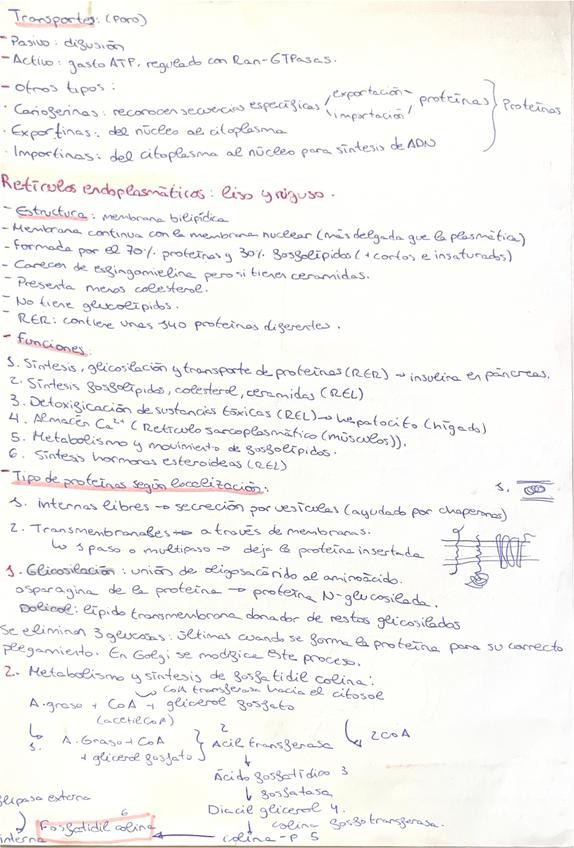 Transportes: (Poro)
- Pasivo: difusión
- Activo: gasto ATP, regulado con Ran-GTPasas.
- Otros tipos:
· Carioferinas: reconocen secuencias específicas exportación importación proteínas } Proteínas
· Exportinas: del núcleo al citoplasma
· Importinas: del citoplasma al núcleo para síntesis de ADN
Retículos endoplasmáticos: liso y rugoso.
- Estructura: membrana bilipídica
- Membrana continua con la membrana nuclear (más delgada que la plasmática)
- Formada por el 70% proteínas y 30% fosfolípidos (+ cortos e insaturados)
- Carecen de esfingomielina pero si tienen ceramidas.
- Presenta menos colesterol.
- No tiene glucolípidos.
- RER: contiene unas 140 proteínas diferentes.
- Funciones:
1. Síntesis, glicosilación y transporte de proteínas (RER) → insulina en páncreas.
2. Síntesis fosfolípidos, colesterol, ceramidas (REL)
3. Detoxificación de sustancias tóxicas (REL) → hepatocito (hígado)
4. Almacén Ca²⁺ (Retículo sarcoplasmático (músculos)).
5. Metabolismo y movimiento de fosfolípidos.
6. Síntesis hormonas esteroideas (REL)
- Tipo de proteínas según localización:
1.
1. Internas libres → secreción por vesículas (ayudado por chaperonas)
2. Transmembranales → a través de membranas.
↳ 1 paso o multipaso → deja la proteína insertada
1. Glicosilación: unión de oligosacárido al aminoácido.
asparagina de la proteína → proteína N-glucosilada.
Dolicol: lípido transmembrana donador de restos glicosilados
Se eliminan 3 glucosas: últimas cuando se forma la proteína para su correcto
plegamiento. En Golgi se modifica este proceso.
2. Metabolismo y síntesis de fosfatidil colina:
CoA transferasa hacia el citosol
A. graso + CoA + glicerol fosfato
(acetil CoA)
1. A. Graso + CoA + glicerol fosfato } 2 Acil transferasa 2 CoA
↓
Ácido fosfatídico 3
↓ fosfatasa
Diacil glicerol 4.
↓ colina fosfotransferasa.
colina-P 5
flipasa externa
6
Fosfatidil colina ←
interna